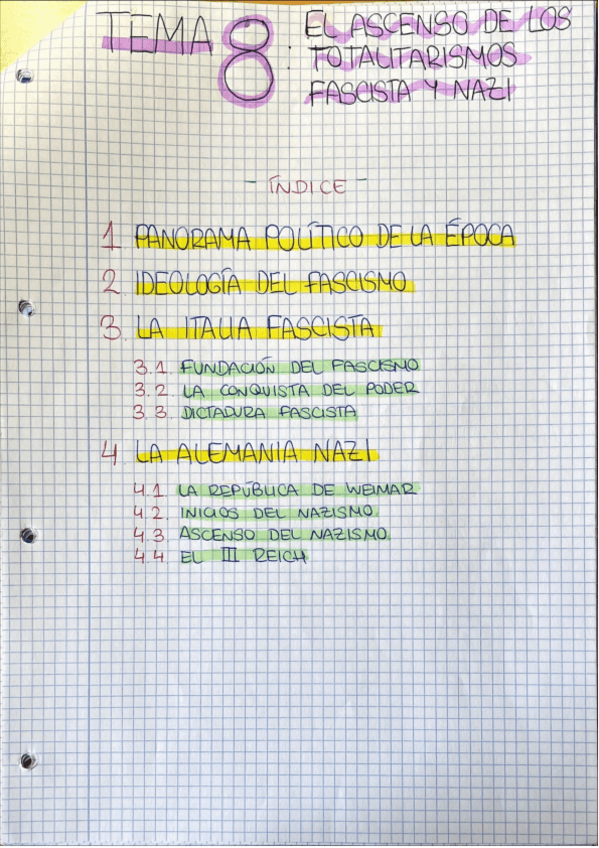 TEMA 8: EL ASCENSO DE LOS
TOTALITARISMOS
FASCISTA Y NAZI
- ÍNDICE -
1 PANORAMA POLÍTICO DE LA ÉPOCA
2. IDEOLOGÍA DEL FASCISMO
3. LA ITALIA FASCISTA
3.1. FUNDACIÓN DEL FASCISMO
3.2. LA CONQUISTA DEL PODER
3.3. DICTADURA FASCISTA
4. LA ALEMANIA NAZI
4.1. LA REPÚBLICA DE WEIMAR
4.2. INICIOS DEL NAZISMO.
4.3 ASCENSO DEL NAZISMO.
4.4 EL III REICH